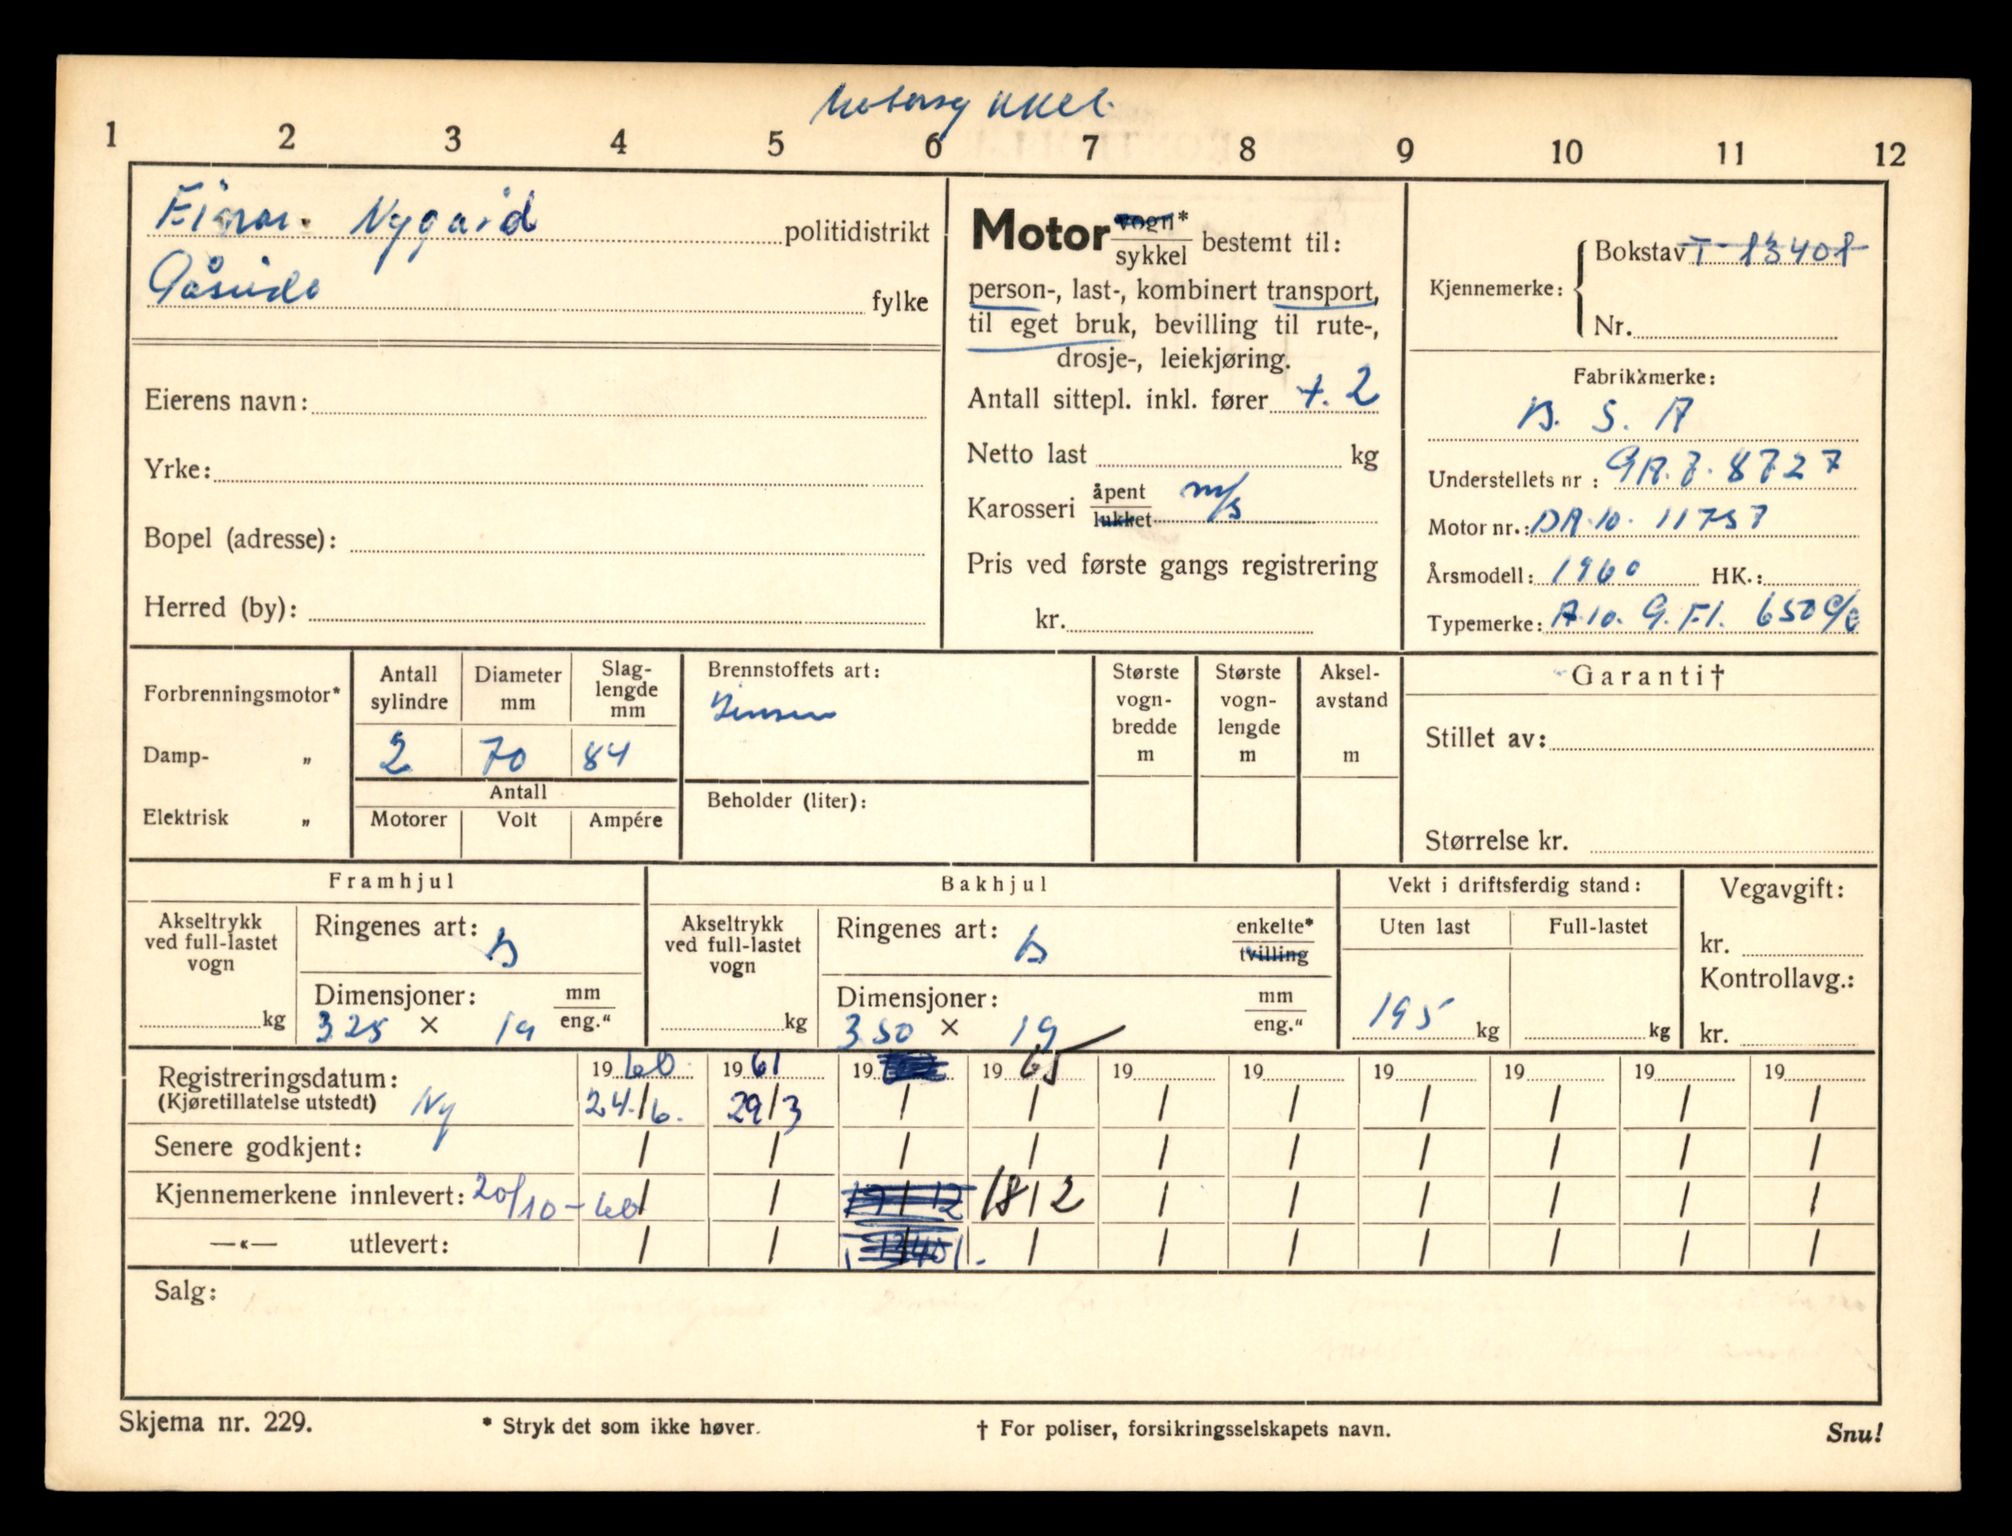 Motorsykkel.
1 2 3 4 5 6 7 8 9 10 11 12
Einar Nygård politidistrikt
fylke
Eierens navn:
Yrke:
Bopel (adresse):
Herred (by):
Motor vogn* / sykkel bestemt til:
person-, last-, kombinert transport,
til eget bruk, bevilling til rute-,
drosje-, leiekjøring.
Antall sittepl. inkl. fører +. 2
Netto last kg
Karosseri åpent / lukket m/s
Pris ved første gangs registrering
kr.
Kjennemerke: Bokstav T-13401
Nr.
Fabrikkmerke:
B. S. A
Understellets nr : GA.7.8727
Motor nr.: DA.10. 11757
Årsmodell: 1960 HK.:
Typemerke: A.10. G.Fl. 650 c/c
Forbrenningsmotor*
Damp- „
Elektrisk „
Antall sylindre
2
Diameter mm
70
Slag-lengde mm
84
Antall
Motorer Volt Ampére
Brennstoffets art:
Bensin
Beholder (liter):
Største vogn-bredde m
Største vogn-lengde m
Aksel-avstand m
Garanti†
Stillet av:
Størrelse kr.
Framhjul
Akseltrykk ved full-lastet vogn
kg
Ringenes art: B
Dimensjoner: mm / eng.“
325 × 19
Bakhjul
Akseltrykk ved full-lastet vogn
kg
Ringenes art: B enkelte* / tvilling
Dimensjoner: mm / eng.“
350 × 19
Vekt i driftsferdig stand:
Uten last Full-lastet
195 kg kg
Vegavgift:
kr.
Kontrollavg.:
kr.
Registreringsdatum: 19 60 19 61 19 19 65 19 19 19 19 19 19
(Kjøretillatelse utstedt) Ny 24./6. 29/3 / / / / / / / /
Senere godkjent: / / / / / / / / / /
Kjennemerkene innlevert: 20/10-60 / / 17/12 18/2 / / / / / /
—«— utlevert: / / 13401. / / / / / / /
Salg:
Skjema nr. 229.
* Stryk det som ikke høver.
† For poliser, forsikringsselskapets navn.
Snu!